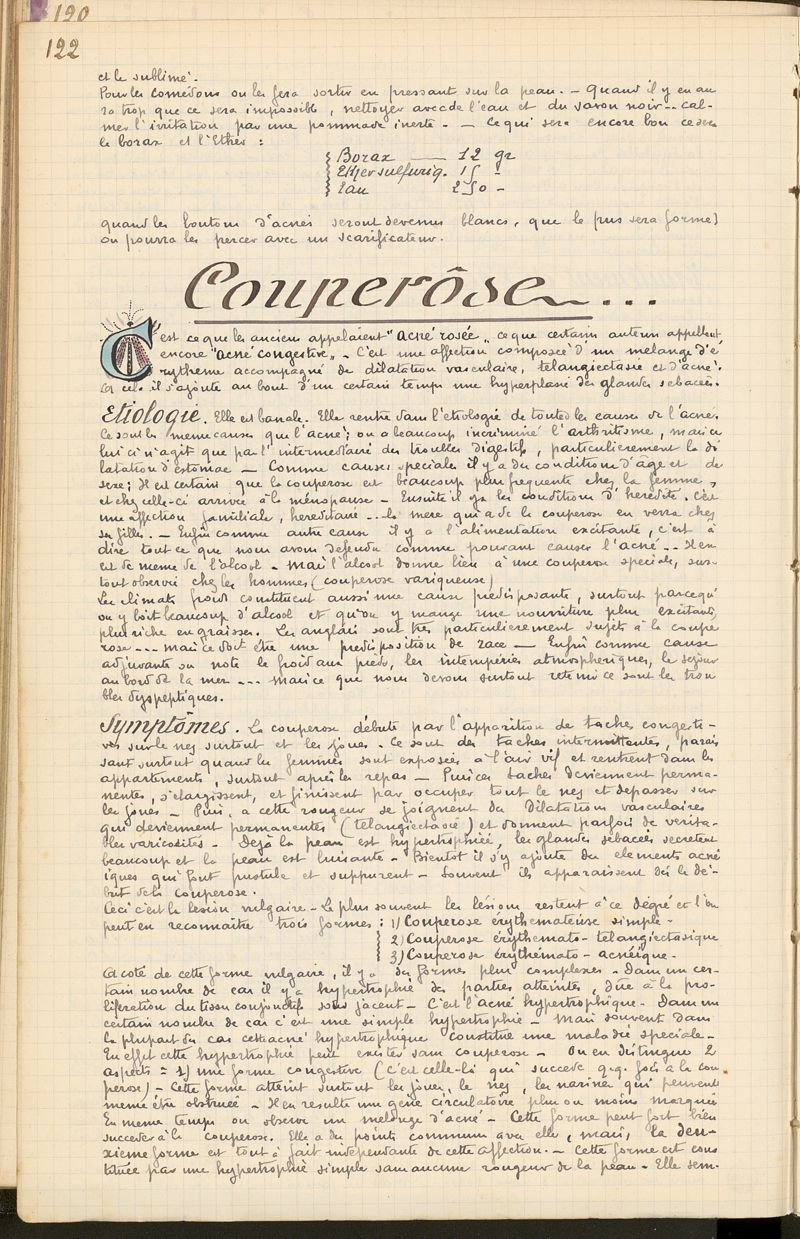 120
122
et le sublimé.
Pour les comédons on les fera sortir en pressant sur la peau. — Quand il y en au
ra trop que ce sera impossible, nettoyer avec de l'eau et du savon noir -- cal-
mer l'irritation par une pommade inerte. — Ce qui sera encore bon ce sera
le borax et l'Ether :
Borax — 12 gr
Ether sulfuriq. 15 -
Eau 250 -
quand les boutons d'acnés seront devenus blancs, que le pus sera formé)
on pourra les percer avec un scarificateur.
Couperôse...
C'est ce que les anciens appelaient "acné rosée", ce que certains auteurs appellent
encore "acné congestive". - C'est une affection composée d'un mélange d'é
rythème accompagné de dilatation vasculaire, telangiectasie et d'acné.
A cela il s'ajoute au bout d'un certain temps une hyperplasie des glandes sebacées.
Etiologie. Elle est banale. Elle rentre dans l'etiologie de toutes les causes de l'acné.
Ce sont les meme causes que l'acné; on a beaucoup incriminé l'arthritisme, mais ce
lui ci n'agit que par l'intermediaire des troubles digestifs, particulierement la di
latation d'estomac — Comme causes speciales il y a des conditions d'âge et de
sexe; Il est certain que la couperose est beaucoup plus frequente chez la femme,
et chez celle-ci arrive à la ménopause — Ensuite il y a les conditions d'hérédité. C'est
une affection familiale, hereditaire ... la mere qui a de la couperose en verra chez
ses filles. — Enfin comme autre cause il y a l'alimentation excitante, c'est à
dire tout ce que nous avons defendu comme pouvant causer l'acné -- Il en
est de meme de l'alcool - mais l'alcool donne lieu à une couperose speciale, sur-
tout observée chez les hommes (couperose variqueuse)
Les climats froids constituent aussi une cause predisposante, surtout parcequ'
on y boit beaucoup d'alcool et qu'on y mange une nourriture plus excitante,
plus riche en graisses. Les anglais sont très particulierement sujets à la coupe
rose --- mais ce doit être une predisposition de race — Enfin comme cause
adjuvante on note le froid aux pieds, les intempéries atmospheriques, le sejour
au bord de la mer --- mais ce que nous devons surtout retenir ce sont les trou
bles dyspeptiques.
Symptômes. La couperose débute par l'apparition de taches congesti-
ves sur le nez surtout et les joues. Ce sont des taches intermittentes, parais
sant surtout quand les femmes sont exposées à l'air vif et rentrent dans les
appartements, surtout après les repas — Puis ces taches deviennent perma-
nentes, s'élargissent, et finissent par occuper tout le nez et depasser sur
les joues — Puis, a cette rougeur se joignent des Dilatations vasculaires
qui deviennent permanentes (telangiectasié) et donnent parfois de verita-
bles varicosités - Dejà la peau est hypertrophiée, les glandes sebacées secretent
beaucoup et la peau est luisante - Bientot il s'y ajoute des elements acné
iques qui font pustule et suppurent - Souvent ils apparaissent dès le dé-
but de la couperose.
Ceci c'est la lesion vulgaire - Le plus souvent les lésions restent à ce dégré et l'on
peut en reconnaitre trois formes : 1) Couperose érythemateuse simple -
2) Couperose érythemato-telangiectasique
3) Couperose érythémato-acnéique -
A coté de cette forme vulgaire, il y a des formes plus complexes - Dans un cer-
tain nombre de cas il y a hypertrophie des parties atteintes, dûe à la pro-
liferation du tissu conjonctif sous jacent - C'est l'acné hypertrophique - Dans un
certain nombre de cas c'est une simple hypertrophie - Mais souvent dans
la plupart des cas cette acné hypertrophique constitue une maladie speciale -
En effet cette hypertrophie peut exister sans couperose - On en distingue 2
aspects = 1) une forme congestive (c'est celle-là qui succede q.q. fois à la cou
perose) - Cette forme atteint surtout les joues, le nez, les narines qui peuvent
meme être obstruées - Il en resulte une gêne circulatoire plus ou moins marquée
En meme temps on observe un melange d'acné - Cette forme peut fort bien
succeder à la couperose. Elle a des points communs avec elle, mais, la deu-
xieme forme est tout à fait independante de cette affection. - Cette forme est cons
tituée par une hypertrophie simple sans aucune rougeur de la peau - Elle sem-